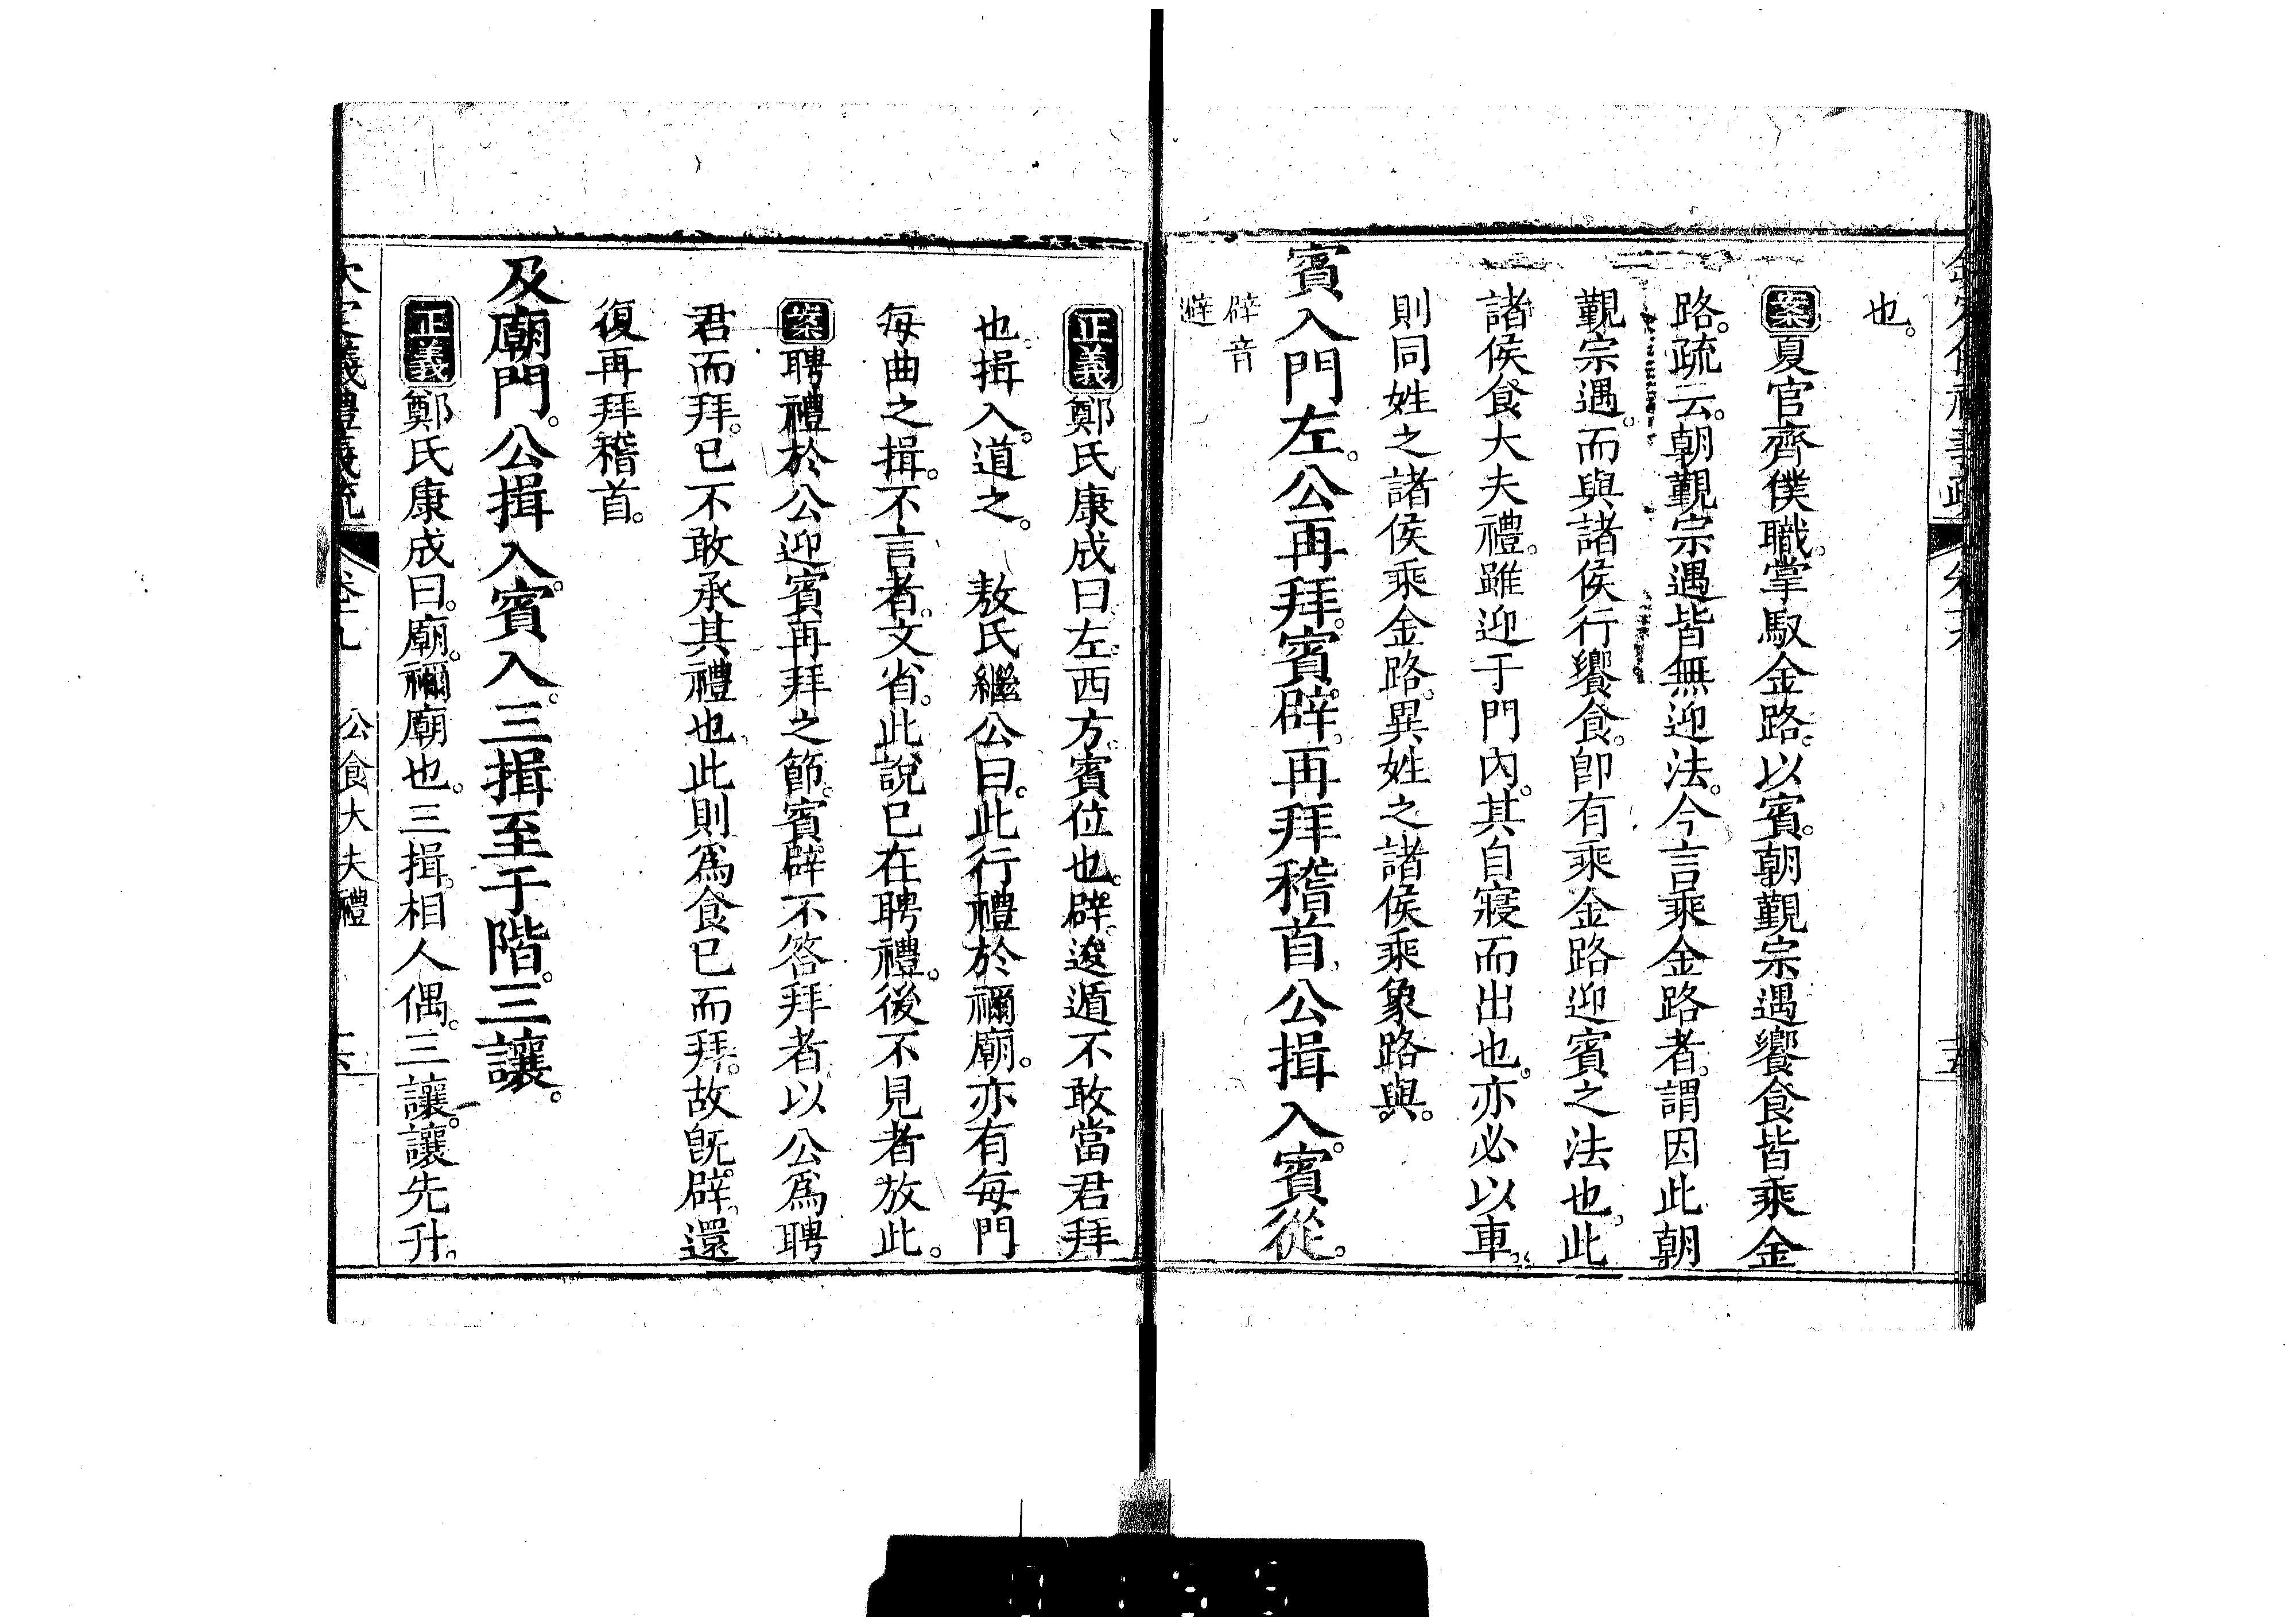 也。
案夏官齊僕職。掌馭金路。以賓。朝覲宗遇饗食皆乘金
路。疏云。朝覲宗遇。皆無迎法。今言乘金路者。謂因此朝
覲宗遇。而與諸侯行饗食。卽有乘金路迎賓之法也。此
諸侯食大夫禮。雖迎于門內。其自寢而出也。亦必以車。
則同姓之諸侯乘金路。異姓之諸侯乘象路與。
賓入門左。公再拜。賓辟。再拜稽首。公揖入。賓從。
辟音
避
正義鄭氏康成曰。左。西方。賓位也。辟。逡遁不敢當君拜
也。揖入。道之。 敖氏繼公曰。此行禮於禰廟。亦有每門
每曲之揖。不言者。文省。此說已在聘禮。後不見者放此。
案聘禮於公迎賓再拜之節。賓辟不答拜者。以公爲聘
君而拜。已不敢承其禮也。此則爲食已而拜。故旣辟。還
復再拜稽首。
及廟門。公揖入。賓入。三揖至于階。三讓。
正義鄭氏康成曰。廟。禰廟也。三揖。相人偶。三讓。讓先升。
義禮義疏 公食大夫禮